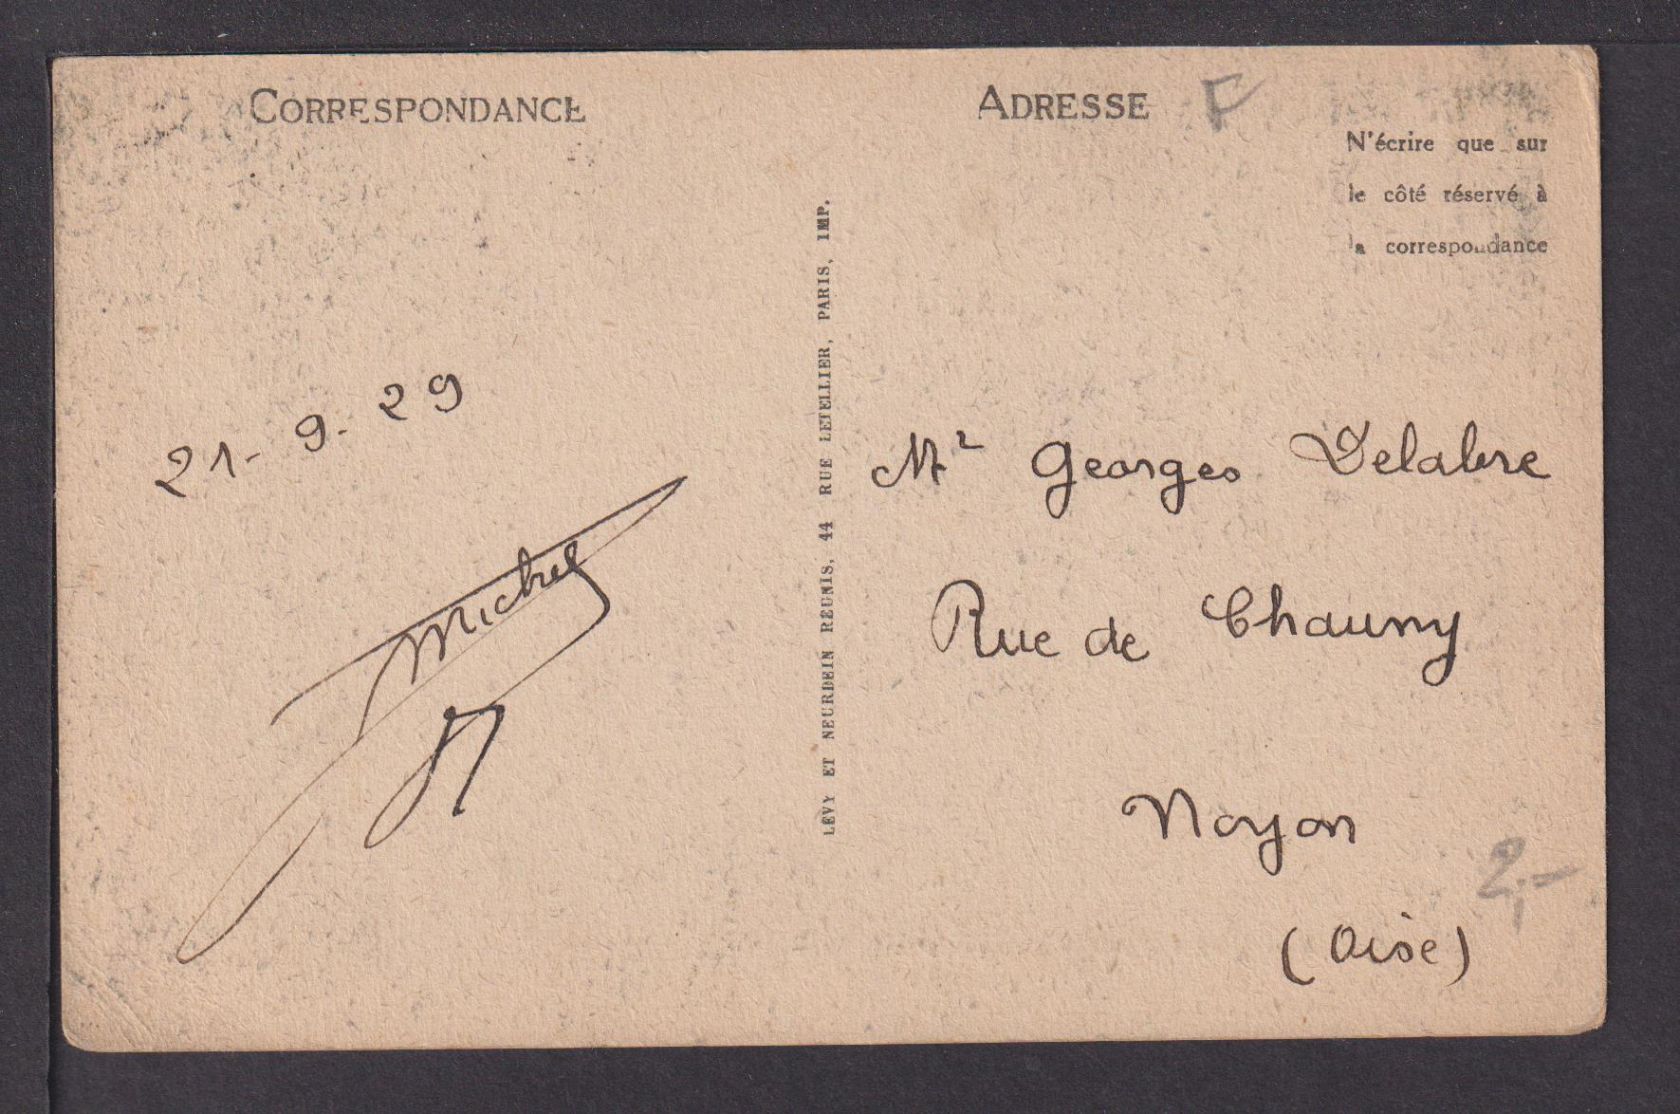 CORRESPONDANCE
21-9-29
Michel
LÉVY ET NEURDEIN RÉUNIS, 44 RUE LETELLIER, PARIS, IMP.
ADRESSE F
N'écrire que sur
le côté réservé à
la correspondance
Mr Georges Delabre
Rue de Chauny
Noyon
(Oise)
2,-